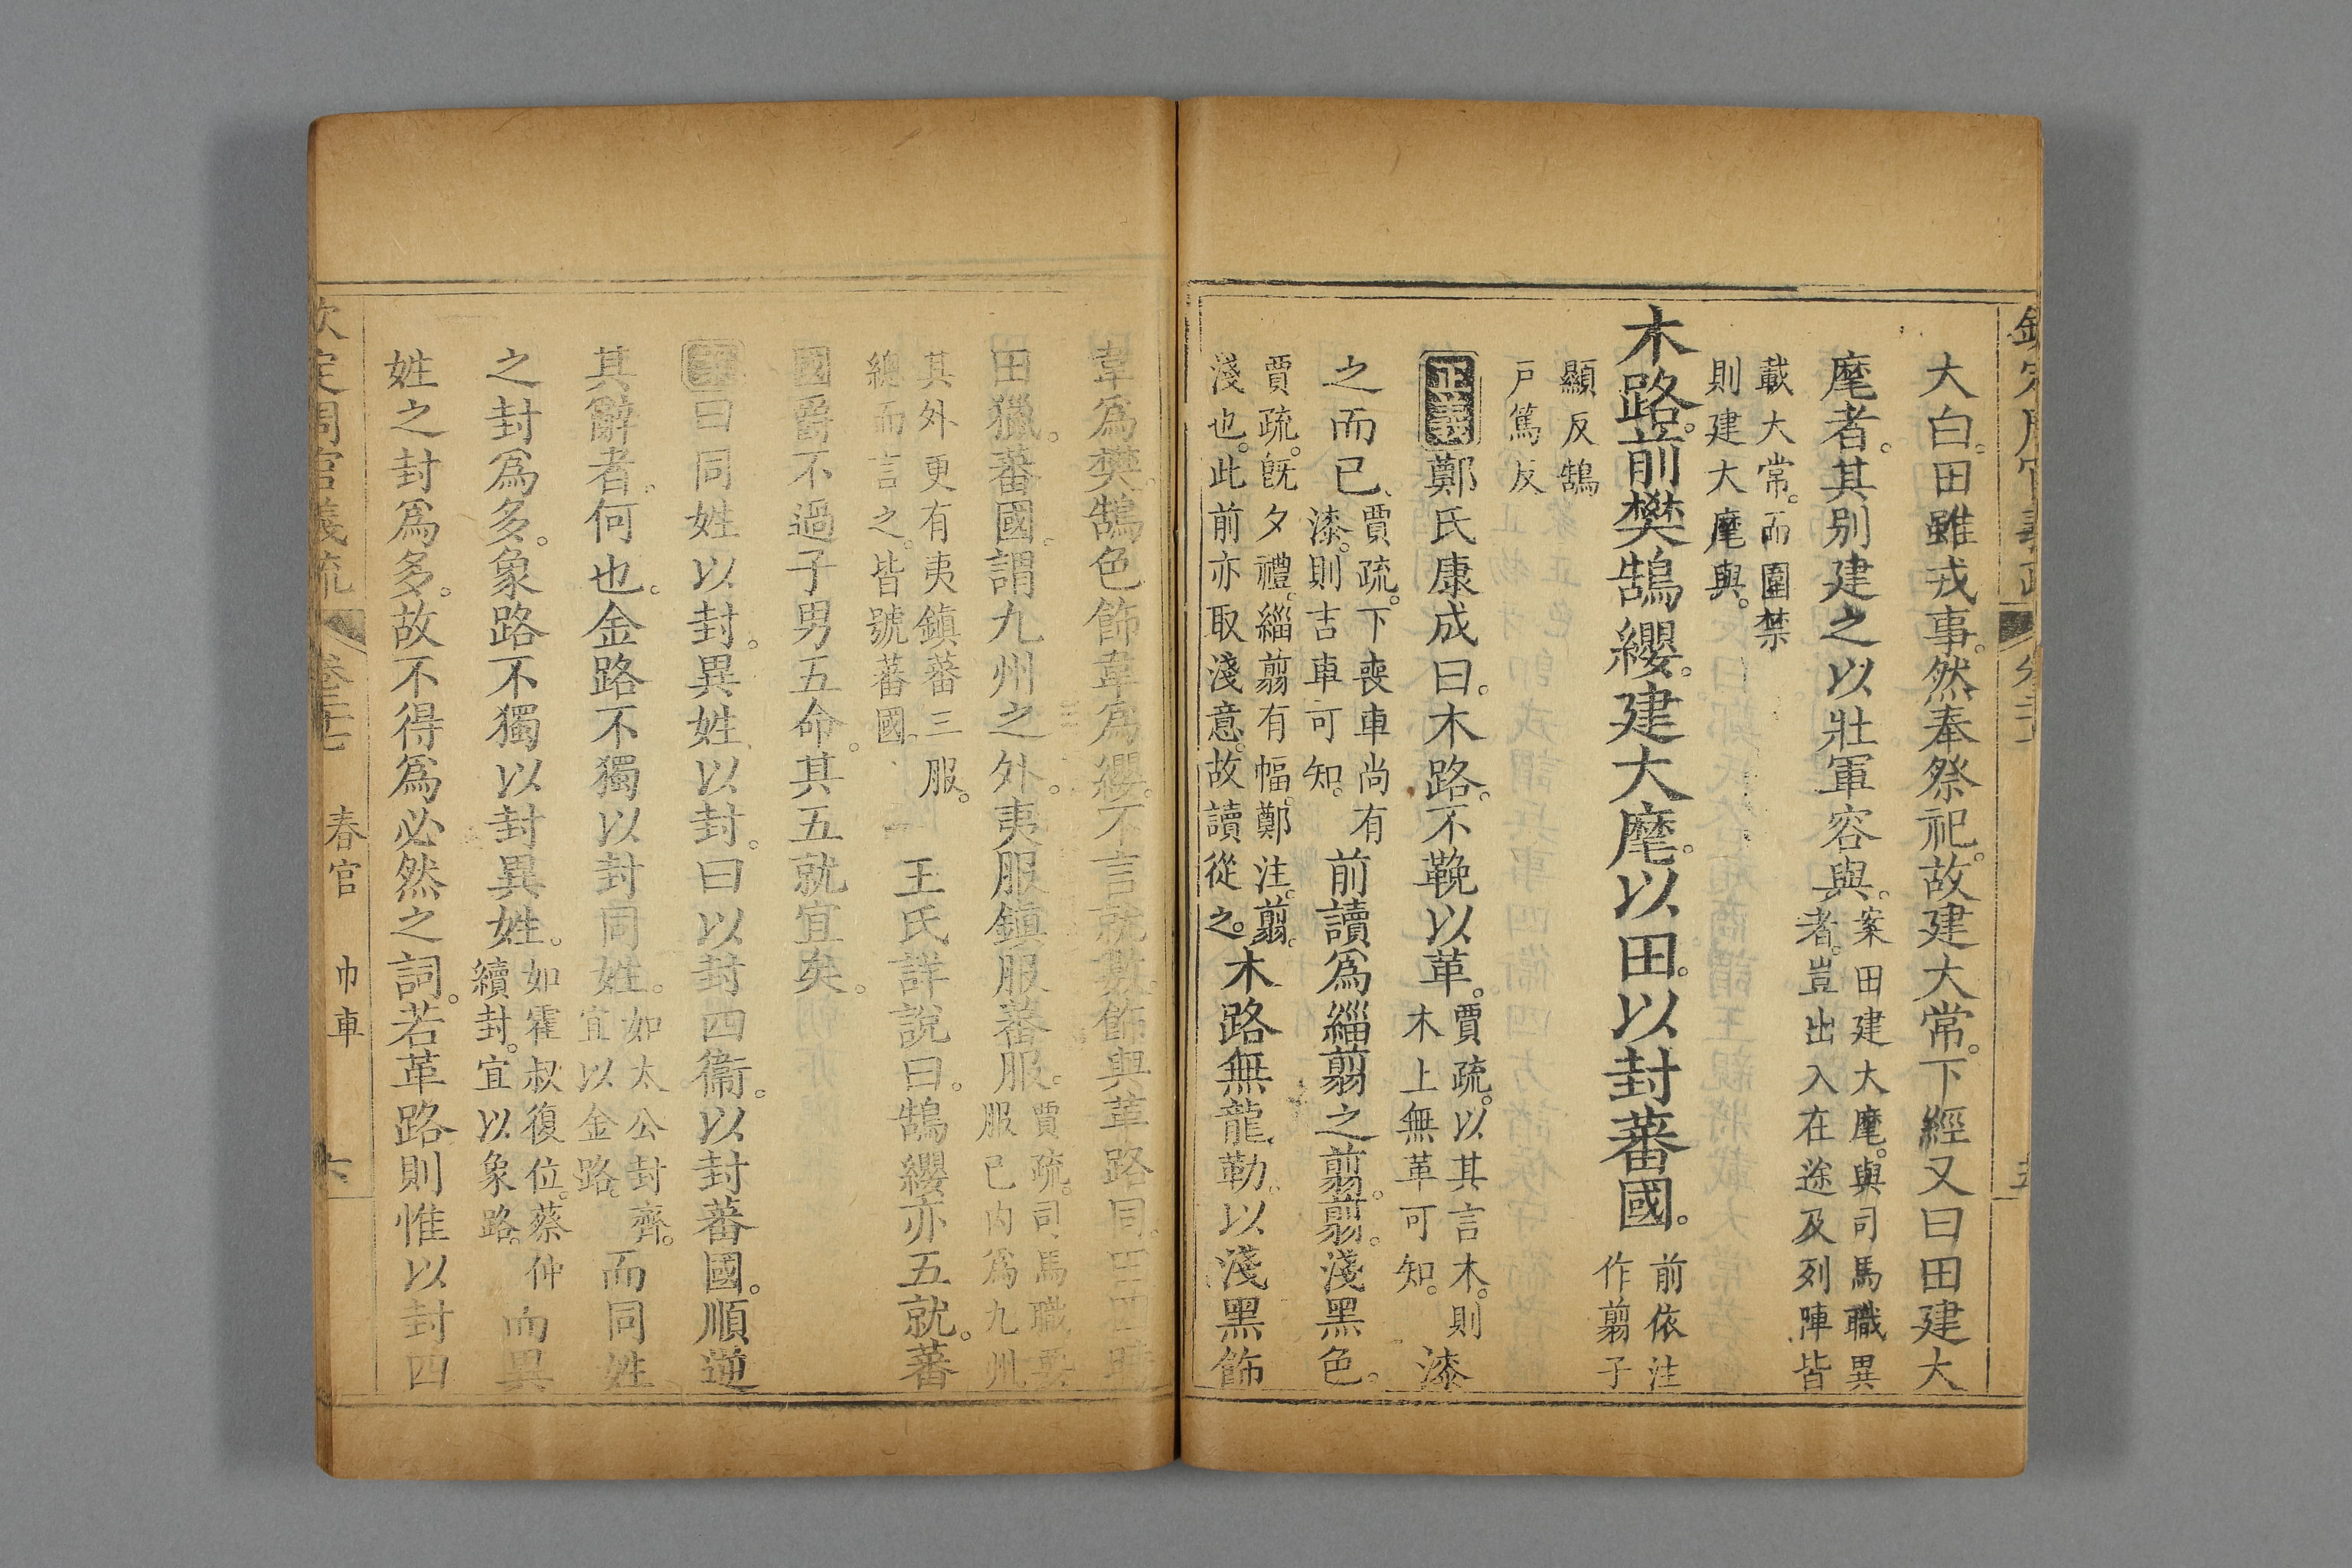 大白。田雖戎事。然奉祭祀。故建大常。下經又曰田建大
麾者。其別建之以壯軍容與。案田建大麾。與司馬職異
者。豈出入在途及列陣皆
載大常。而圍禁
則建大麾與。
木路。前樊鵠纓。建大麾。以田。以封蕃國。前依注
作翦子
顯反鵠
戸篤反
正義鄭氏康成曰。木路。不鞔以革。賈疏。以其言木。則
木上無革可知。漆
之而已、賈疏。下喪車尚有
漆。則吉車可知。前讀爲緇翦之翦。翦。淺黑色。
賈疏。旣夕禮。緇翦有幅。鄭注。翦。
淺也。此前亦取淺意。故讀從之。木路無龍勒。以淺黑飾
韋爲樊。鵠色飾韋爲纓。不言就數。飾與革路同。田四時
田獵。蕃國。謂九州之外。夷服鎮服蕃服。賈疏。司馬職要
服已內爲九州
其外更有夷鎮蕃三服。
總而言之。皆號蕃國。王氏詳說曰。鵠纓亦五就。蕃
國爵不過子男五命。其五就宜矣。
曰同姓以封。異姓以封。曰以封四衞。以封蕃國。順逆
其辭者。何也。金路不獨以封同姓。如太公封齊。
宜以金路。而同姓
之封爲多。象路不獨以封異姓。如霍叔復位。蔡仲
續封。宜以象路。而異
姓之封爲多。故不得爲必然之詞。若革路則惟以封四
欽定周官義疏 卷二十七 春官 巾車 六